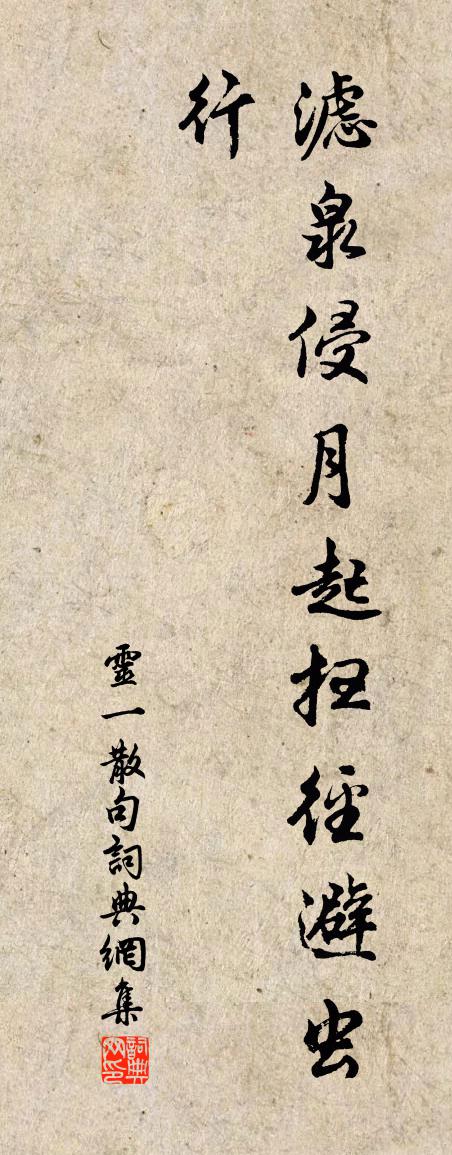 滤泉侵月起扫徑避虫
行
靈一散句詞典網集
詞典
网印